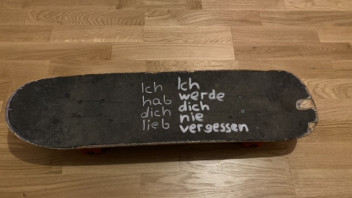 Ich
hab
dich
lieb
Ich
werde
dich
nie
vergessen